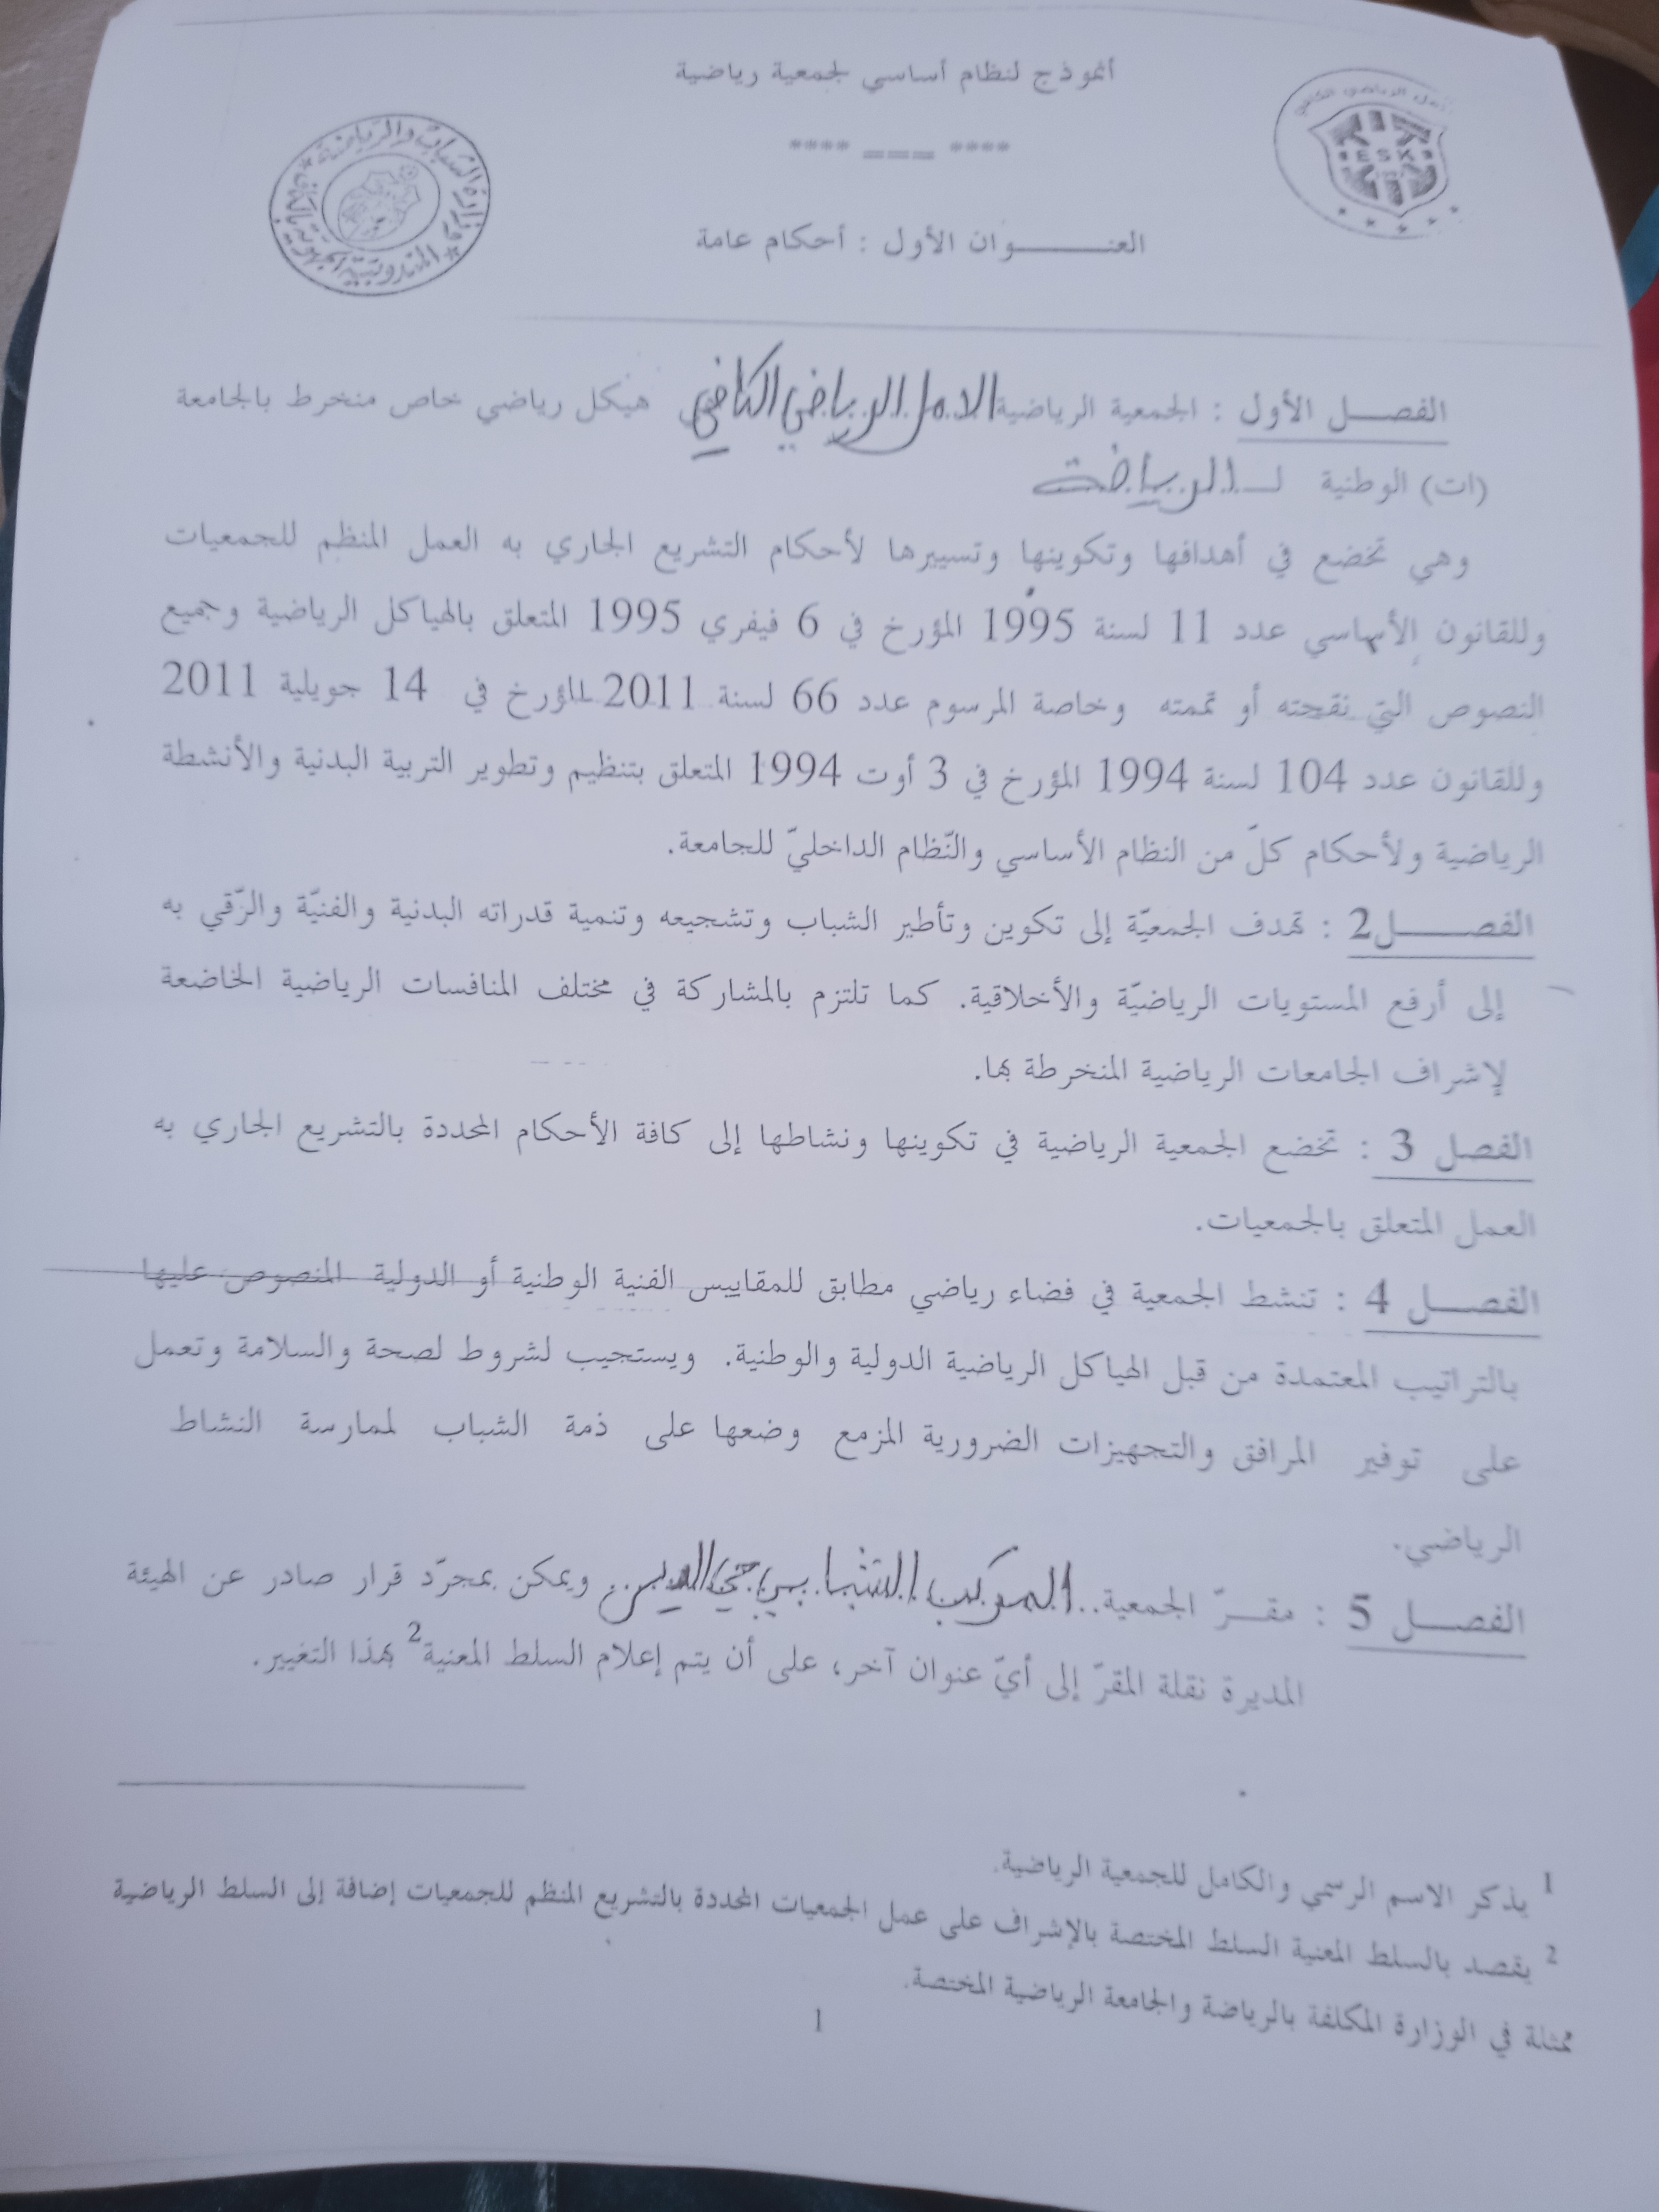 أنموذج لنظام أساسي لجمعية رياضية
**** ___ ****
العنـــــــوان الأول : أحكام عامة
وزارة الشباب والرياضة
المندوبية الجهوية
الرياضي الكافي
E S K
الفصــل الأول : الجمعية الرياضية الامل الرياضي الكافي هيكل رياضي خاص منخرط بالجامعة
(ات) الوطنية لـ الرياضة
وهي تخضع في أهدافها وتكوينها وتسييرها لأحكام التشريع الجاري به العمل المنظم للجمعيات
وللقانون الأساسي عدد 11 لسنة 1995 المؤرخ في 6 فيفري 1995 المتعلق بالهياكل الرياضية وجميع
النصوص التي نقحته أو تممته وخاصة المرسوم عدد 66 لسنة 2011 المؤرخ في 14 جويلية 2011
وللقانون عدد 104 لسنة 1994 المؤرخ في 3 أوت 1994 المتعلق بتنظيم وتطوير التربية البدنية والأنشطة
الرياضية ولأحكام كلّ من النظام الأساسي والنّظام الداخليّ للجامعة.
الفصــــــل2 : تهدف الجمعيّة إلى تكوين وتأطير الشباب وتشجيعه وتنمية قدراته البدنية والفنيّة والرّقي به
إلى أرفع المستويات الرياضيّة والأخلاقية. كما تلتزم بالمشاركة في مختلف المنافسات الرياضية الخاضعة
لإشراف الجامعات الرياضية المنخرطة بها.
الفصل 3 : تخضع الجمعية الرياضية في تكوينها ونشاطها إلى كافة الأحكام المحددة بالتشريع الجاري به
العمل المتعلق بالجمعيات.
الفصــل 4 : تنشط الجمعية في فضاء رياضي مطابق للمقاييس الفنية الوطنية أو الدولية المنصوص عليها
بالتراتيب المعتمدة من قبل الهياكل الرياضية الدولية والوطنية. ويستجيب لشروط لصحة والسلامة وتعمل
على توفير المرافق والتجهيزات الضرورية المزمع وضعها على ذمة الشباب لممارسة النشاط
الرياضي.
الفصــل 5 : مقــرّ الجمعية..المركب الشبابي حي الدير.. ويمكن بمجرّد قرار صادر عن الهيئة
المديرة نقلة المقرّ إلى أيّ عنوان آخر، على أن يتم إعلام السلط المعنية2 بهذا التغيير.
1 يذكر الاسم الرسمي والكامل للجمعية الرياضية.
2 يقصد بالسلط المعنية السلط المختصة بالإشراف على عمل الجمعيات المحددة بالتشريع المنظم للجمعيات إضافة إلى السلط الرياضية
ممثلة في الوزارة المكلفة بالرياضة والجامعة الرياضية المختصة.
1